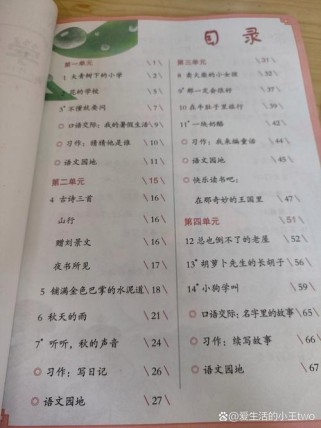 目 录
第一单元 \ 1 \
1 大青树下的小学 \ 2 \
花的学校 \ 5 \
3* 不懂就要问 \ 7 \
◎ 口语交际：我的暑假生活 \ 9 \
◎ 习作：猜猜他是谁 \ 10 \
◎ 语文园地 \ 11 \
第二单元 \ 15 \
4 古诗三首 \ 16 \
山行 \ 16 \
赠刘景文 \ 16 \
夜书所见 \ 17 \
5 铺满金色巴掌的水泥道 \ 18 \
6 秋天的雨 \ 21 \
7* 听听，秋的声音 \ 24 \
◎ 习作：写日记 \ 26 \
◎ 语文园地 \ 27 \
第三单元 \ 31 \
8 卖火柴的小女孩 \ 32 \
9* 那一定会很好 \ 37 \
10 在牛肚子里旅行 \ 39 \
11* 一块奶酪 \ 42 \
◎ 习作：我来编童话 \ 44 \
◎ 语文园地 \ 45 \
◎ 快乐读书吧：
在那奇妙的王国里 \ 47 \
第四单元 \ 51 \
12 总也倒不了的老屋 \ 52 \
13* 胡萝卜先生的长胡子 \ 56 \
14* 小狗学叫 \ 59 \
◎ 口语交际：名字里的故事 \ 65 \
◎ 习作：续写故事 \ 66 \
◎ 语文园地 \ 67 \
@爱生活的小王two